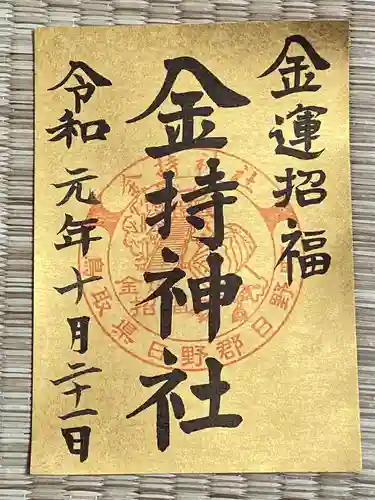 金運招福
金持神社
令和元年十月二十一日
金持神社
鳥取県日野郡日野
金招